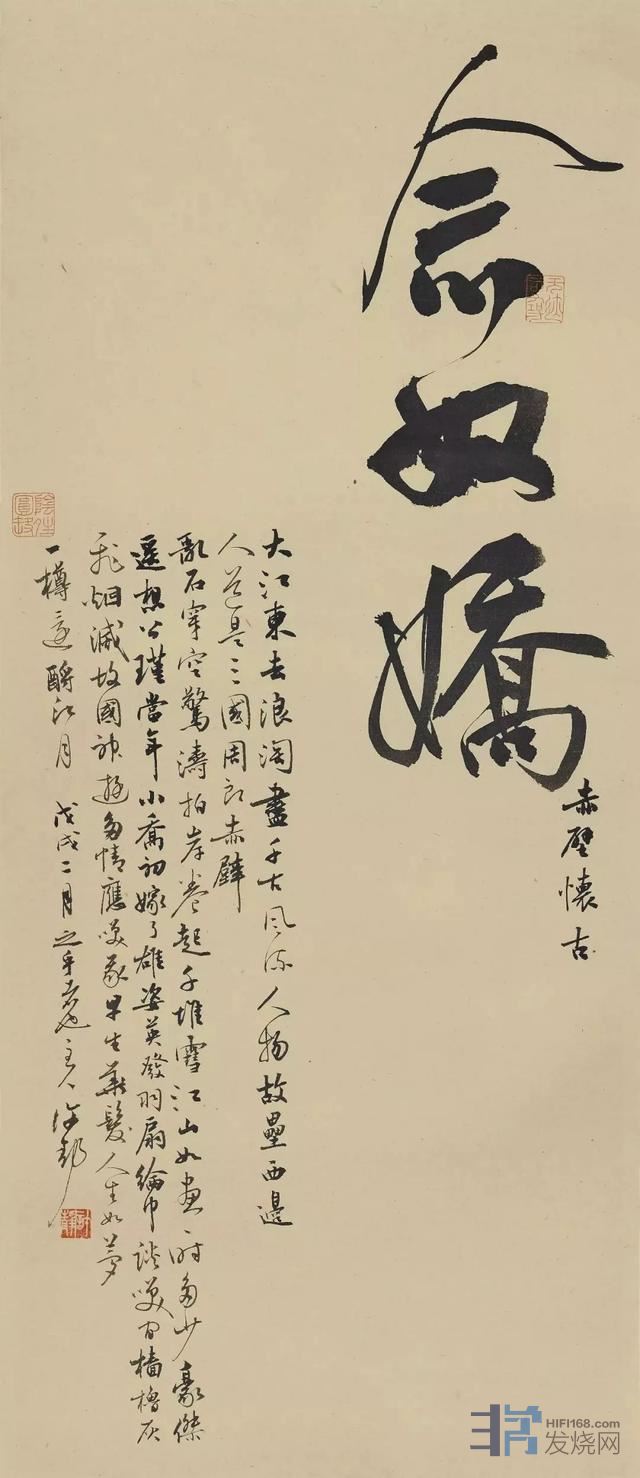 念奴嬌
赤壁懷古
大江東去浪淘盡千古風流人物故壘西邊
人道是三國周郎赤壁
亂石穿空驚濤拍岸卷起千堆雪江山如畫一時多少豪傑
遙想公瑾當年小喬初嫁了雄姿英發羽扇綸巾談笑間檣櫓灰
飛烟滅故國神遊多情應笑我早生華髮人生如夢
一樽還酹江月 戊戌二月之乎者也主人許靜
HIFI168.com
发烧网